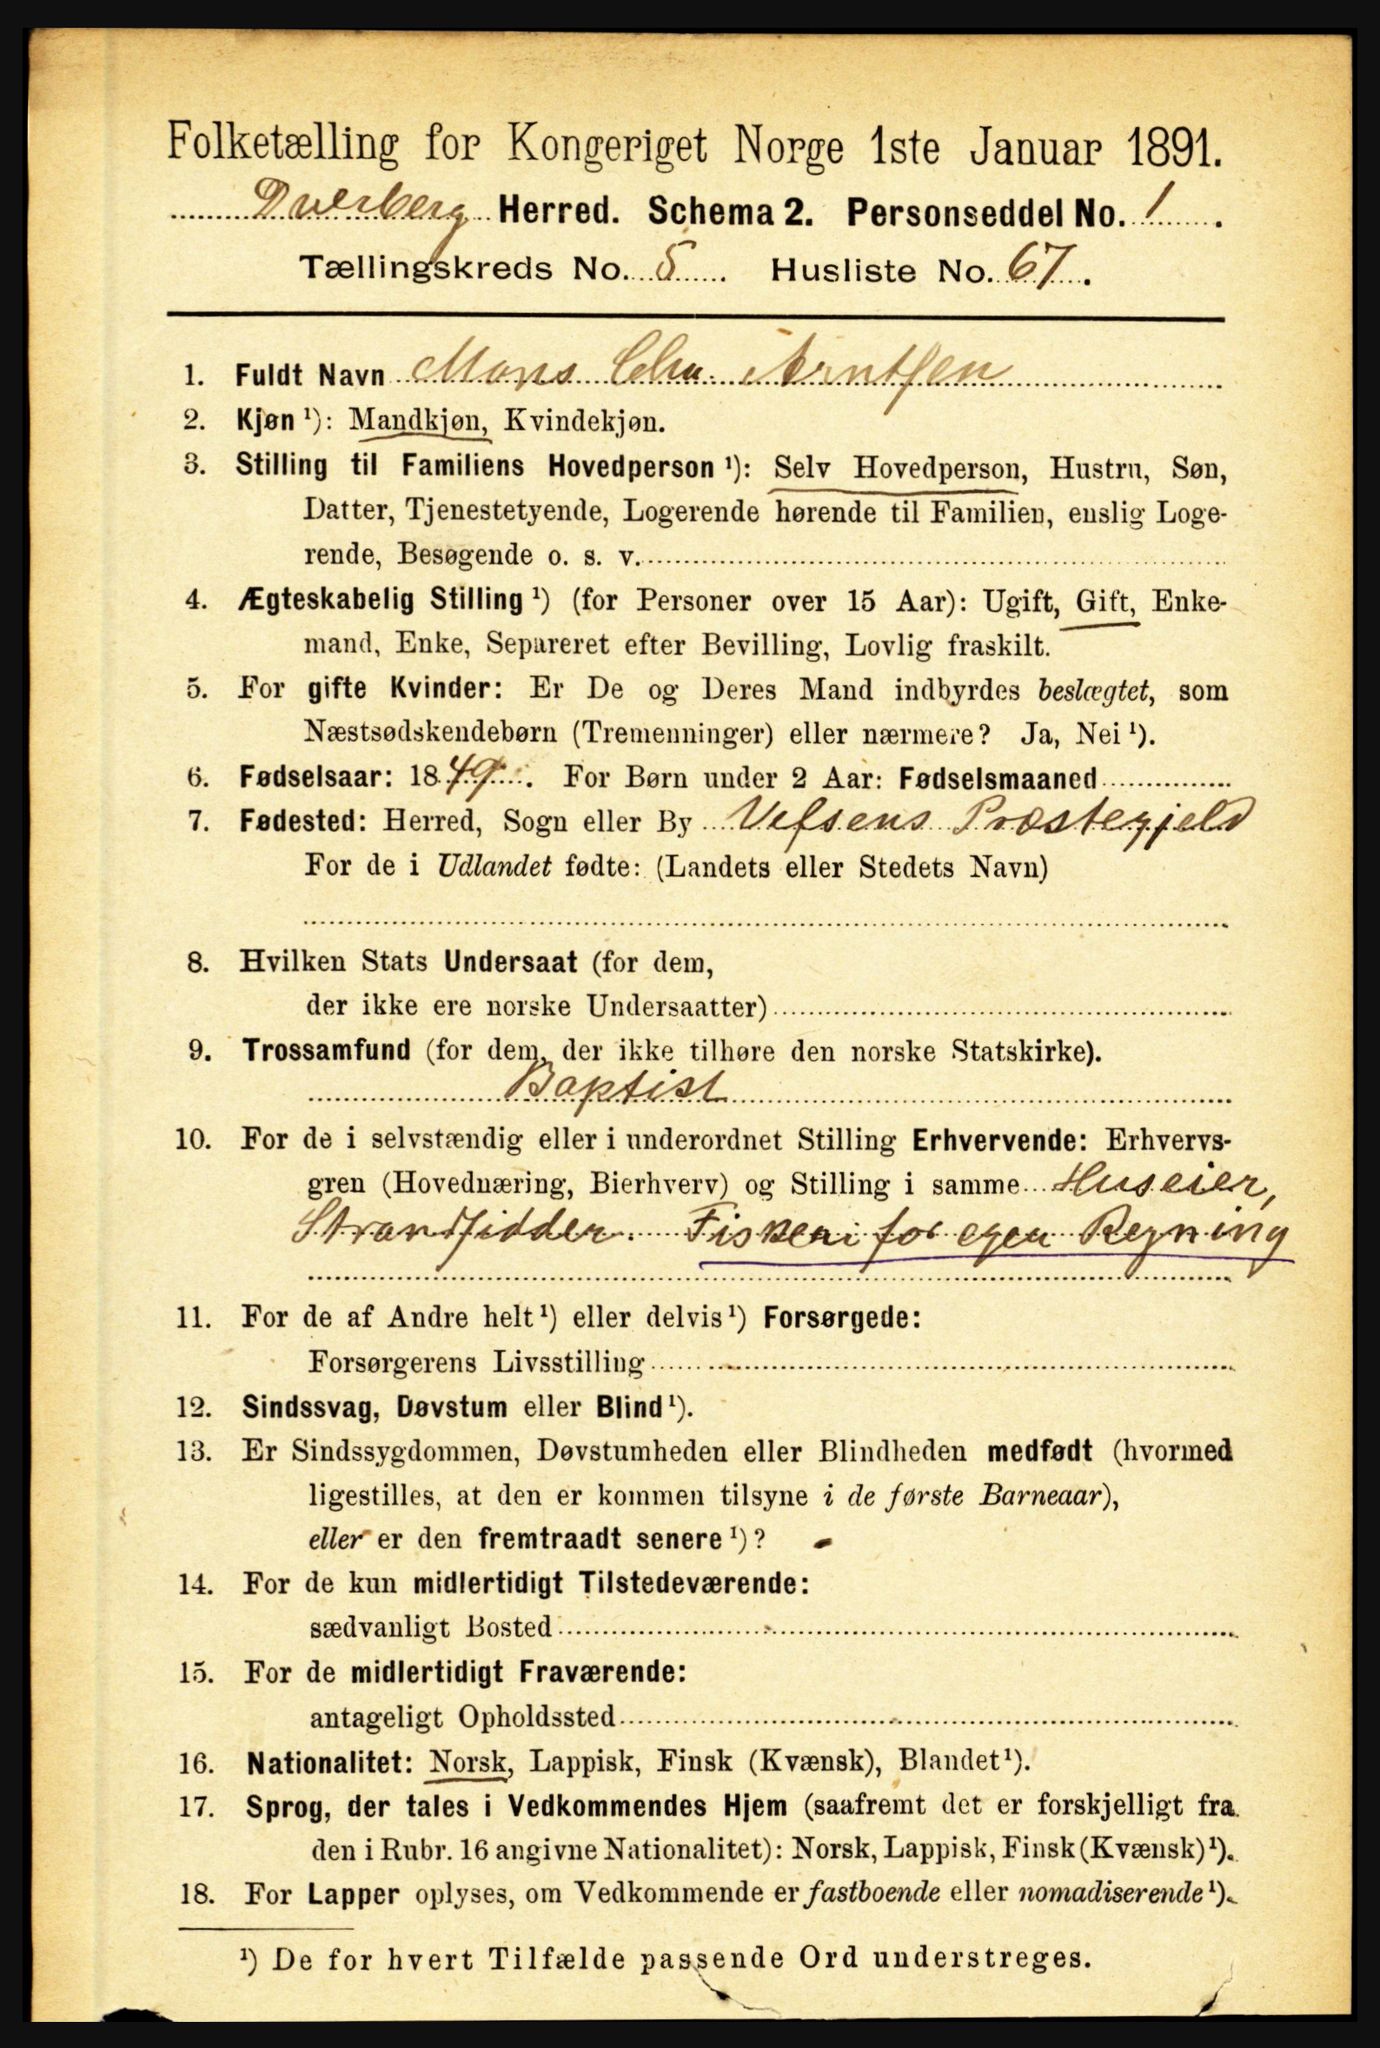 Folketælling for Kongeriget Norge 1ste Januar 1891.
Dverberg Herred. Schema 2. Personseddel No. 1.
Tællingskreds No. 5. Husliste No. 67.
1. Fuldt Navn Mons Chr. Arntsen
2. Kjøn ¹): Mandkjøn, Kvindekjøn.
3. Stilling til Familiens Hovedperson ¹): Selv Hovedperson, Hustru, Søn,
Datter, Tjenestetyende, Logerende hørende til Familien, enslig Loge-
rende, Besøgende o. s. v.
4. Ægteskabelig Stilling ¹) (for Personer over 15 Aar): Ugift, Gift, Enke-
mand, Enke, Separeret efter Bevilling, Lovlig fraskilt.
5. For gifte Kvinder: Er De og Deres Mand indbyrdes beslægtet, som
Næstsødskendebørn (Tremenninger) eller nærmere? Ja, Nei ¹).
6. Fødselsaar: 1849. For Børn under 2 Aar: Fødselsmaaned
7. Fødested: Herred, Sogn eller By Vefsens Præstegjeld
For de i Udlandet fødte: (Landets eller Stedets Navn)
8. Hvilken Stats Undersaat (for dem,
der ikke ere norske Undersaatter)
9. Trossamfund (for dem, der ikke tilhøre den norske Statskirke).
Baptist
10. For de i selvstændig eller i underordnet Stilling Erhvervende: Erhvervs-
gren (Hovednæring, Bierhverv) og Stilling i samme Huseier,
Strandsidder. Fiskeri for egen Regning
11. For de af Andre helt ¹) eller delvis ¹) Forsørgede:
Forsørgerens Livsstilling
12. Sindssvag, Døvstum eller Blind ¹).
13. Er Sindssygdommen, Døvstumheden eller Blindheden medfødt (hvormed
ligestilles, at den er kommen tilsyne i de første Barneaar),
eller er den fremtraadt senere ¹)?
14. For de kun midlertidigt Tilstedeværende:
sædvanligt Bosted
15. For de midlertidigt Fraværende:
antageligt Opholdssted
16. Nationalitet: Norsk, Lappisk, Finsk (Kvænsk), Blandet ¹).
17. Sprog, der tales i Vedkommendes Hjem (saafremt det er forskjelligt fra
den i Rubr. 16 angivne Nationalitet): Norsk, Lappisk, Finsk (Kvænsk) ¹).
18. For Lapper oplyses, om Vedkommende er fastboende eller nomadiserende ¹).
¹) De for hvert Tilfælde passende Ord understreges.